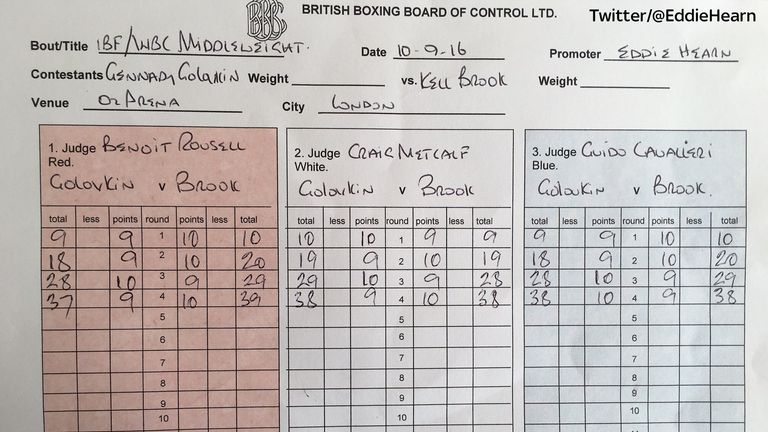 BBBC
BRITISH BOXING BOARD OF CONTROL LTD. Twitter/@EddieHearn
Bout/Title IBF/WBC MIDDLEWEIGHT. Date 10-9-16 Promoter EDDIE HEARN
Contestants GENNADY GOLOVKIN Weight vs. KELL BROOK Weight
Venue O2 ARENA City LONDON
1. Judge BENOIT ROUSELL
Red.
GOLOVKIN v BROOK
total less points round points less total
9 9 1 10 10
18 9 2 10 20
28 10 3 9 29
37 9 4 10 39
5
6
7
8
9
10
2. Judge CRAIG METCALF
White.
GOLOVKIN v BROOK
total less points round points less total
10 10 1 9 9
19 9 2 10 19
29 10 3 9 28
38 9 4 10 38
5
6
7
8
9
10
3. Judge GUIDO CAVALIERI
Blue.
GOLOVKIN v BROOK.
total less points round points less total
9 9 1 10 10
18 9 2 10 20
28 10 3 9 29
38 10 4 9 38
5
6
7
8
9
10